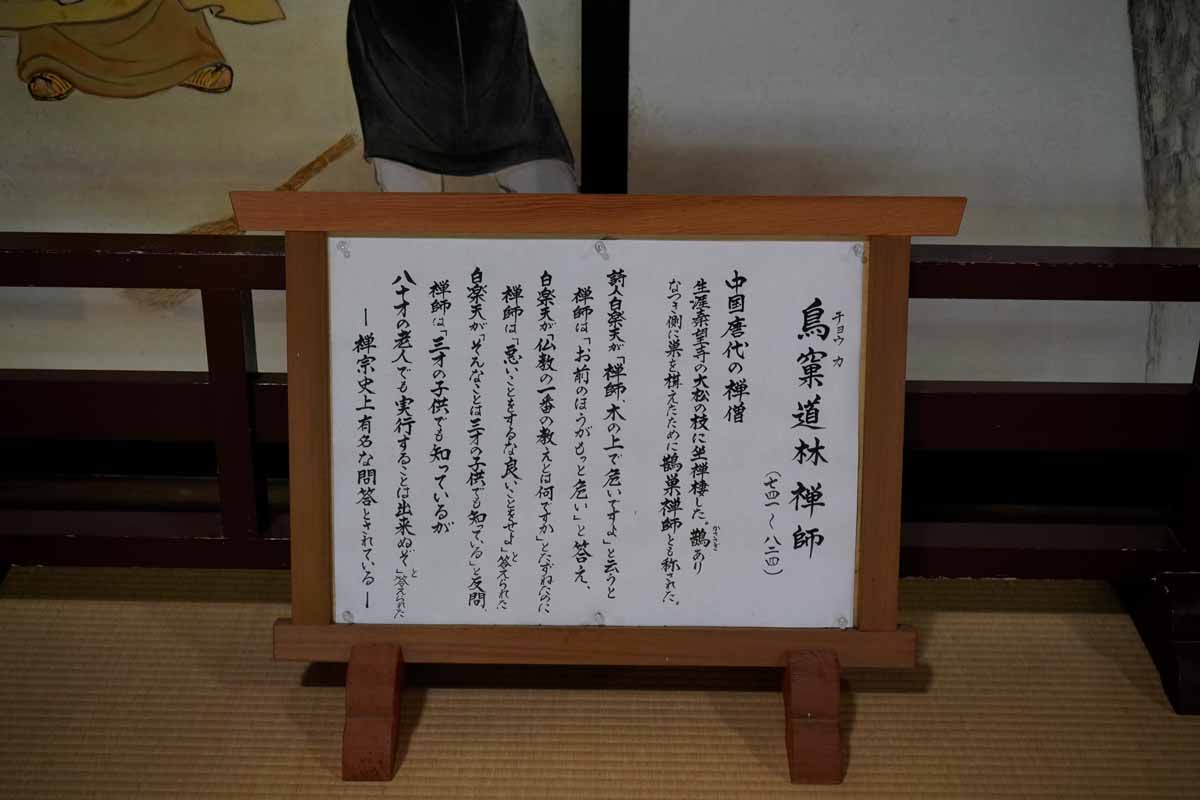 チョウ カ
鳥窠道林禅師
(七四一〜八二四)
中国唐代の禅僧
生涯秦望寺の大松の枝に坐禅棲した。鵲あり
かささぎ
なつき側に巣を構えたために鵲巣禅師とも称された。
詩人白楽天が「禅師、木の上で危いですよ」と云うと
禅師は「お前のほうがもっと危い」と答え、
白楽天が「仏教の一番の教えとは何ですか」とたずねたのに
禅師は「悪いことをするな良いことをせよ」と答えられた
白楽天が「そんなことは三才の子供でも知っている」と反問、
禅師は「三才の子供でも知っているが
八十才の老人でも実行することは出来ぬぞ」と答えられた
―禅宗史上有名な問答とされている―